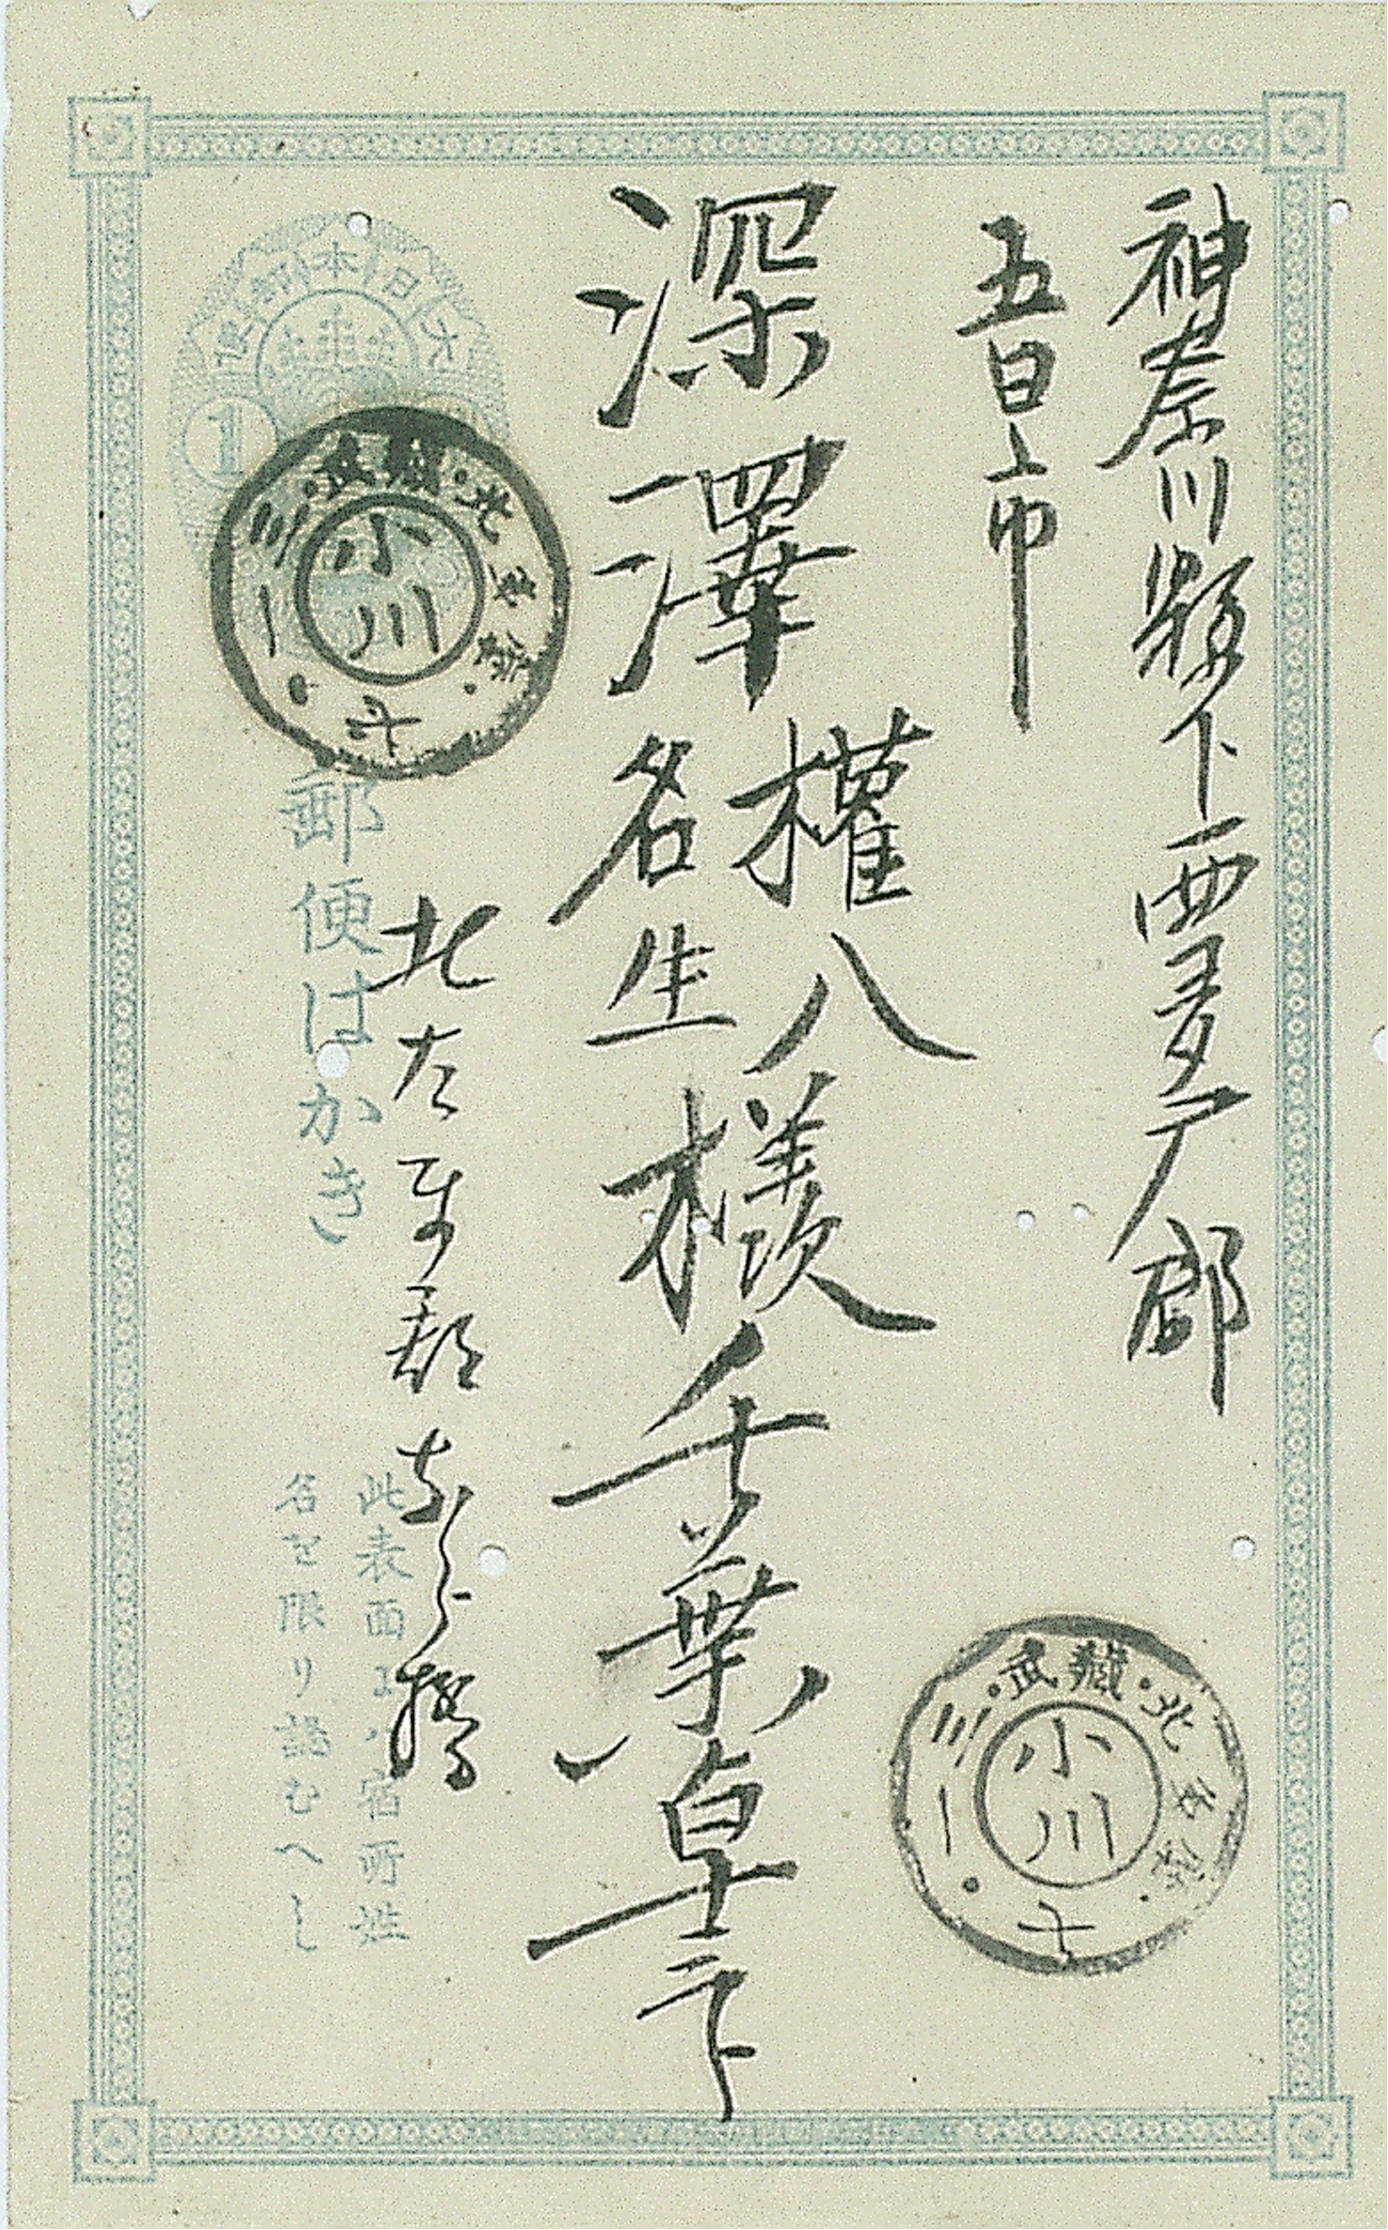 神奈川縣下西多广郡
五日市
深澤權八様
名生
千葉卓三下
北大
郵便はかき
此表面には宿所姓
名を限り認むへし
大日本帝國郵便
1
武藏・北
小川
三
一
武藏・北
小川
三
一